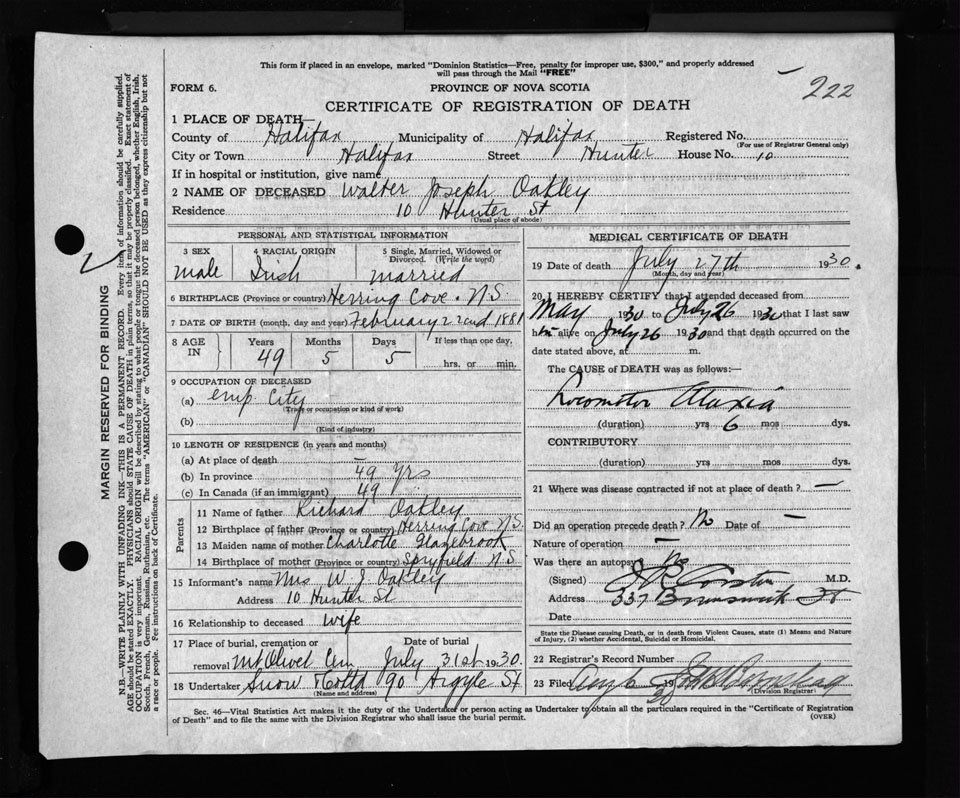 This form if placed in an envelope, marked "Dominion Statistics—Free, penalty for improper use, $300," and properly addressed
will pass through the Mail "FREE"
222
FORM 6.
PROVINCE OF NOVA SCOTIA
CERTIFICATE OF REGISTRATION OF DEATH
1 PLACE OF DEATH—
County of Halifax Municipality of Halifax Registered No.
(For use of Registrar General only)
City or Town Halifax Street Hunter House No. 10
If in hospital or institution, give name
2 NAME OF DECEASED Walter Joseph Oakley
Residence 10 Hunter St
(Usual place of abode)
PERSONAL AND STATISTICAL INFORMATION
3 SEX 4 RACIAL ORIGIN 5 Single, Married, Widowed or
Divorced. (Write the word)
male Irish married
6 BIRTHPLACE (Province or country) Herring Cove. N.S.
7 DATE OF BIRTH (month, day and year) February 22nd 1881
8 AGE IN Years Months Days If less than one day,
49 5 5 hrs. or min.
9 OCCUPATION OF DECEASED
(a) emp. City
(Trade or occupation or kind of work)
(b)
(Kind of industry)
10 LENGTH OF RESIDENCE (in years and months)
(a) At place of death —
(b) In province 49 yrs
(c) In Canada (if an immigrant) 49
Parents
11 Name of father Richard Oakley
12 Birthplace of father (Province or country) Herring Cove N.S.
13 Maiden name of mother Charlotte Glazebrook
14 Birthplace of mother (Province or country) Spryfield N.S.
15 Informant's name Mrs W. J. Oakley
Address 10 Hunter St
16 Relationship to deceased wife
17 Place of burial, cremation or Date of burial
removal Mt Olivet Cem July 31st 1930.
18 Undertaker Snow 90 Argyle St
(Name and address)
MEDICAL CERTIFICATE OF DEATH
19 Date of death July 27th 1930.
(Month, day and year)
20 I HEREBY CERTIFY that I attended deceased from
May 1930 to July 26 1930 that I last saw
him alive on July 26 1930 and that death occurred on the
date stated above, at m.
The CAUSE of DEATH was as follows:—
Locomotor Ataxia
(duration) yrs 6 mos dys.
CONTRIBUTORY
(duration) yrs mos dys.
21 Where was disease contracted if not at place of death? —
Did an operation precede death? No Date of —
Nature of operation —
Was there an autopsy No
(Signed) M.D.
Address 537 Brunswick St
Date
State the Disease causing Death, or in death from Violent Causes, state (1) Means and Nature
of Injury, (2) whether Accidental, Suicidal or Homicidal.
22 Registrar's Record Number
23 Filed Aug 19
(Division Registrar)
Sec. 46—Vital Statistics Act makes it the duty of the Undertaker or person acting as Undertaker to obtain all the particulars required in the "Certificate of Registration
of Death" and to file the same with the Division Registrar who shall issue the burial permit.
(OVER)
MARGIN RESERVED FOR BINDING
N.B.—WRITE PLAINLY WITH UNFADING INK—THIS IS A PERMANENT RECORD. Every item of information should be carefully supplied.
AGE should be stated EXACTLY. PHYSICIANS should STATE CAUSE OF DEATH in plain terms, so that it may be properly classified. Exact statement of
OCCUPATION is very important. RACIAL ORIGIN will be described by stating to what people or tongue the deceased person belonged, whether English, Irish,
Scotch, French, German, Russian, Ruthenian, etc. The terms "AMERICAN" or "CANADIAN" SHOULD NOT BE USED as they express citizenship but not
a race or people. See instructions on back of Certificate.